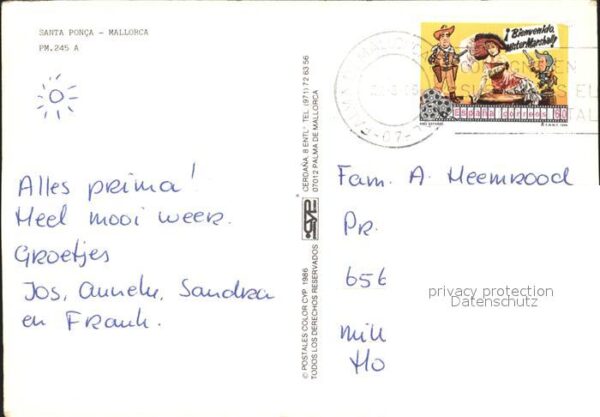 SANTA PONÇA - MALLORCA
PM.245 A
Alles prima!
Heel mooi weer.
Groetjes
Jos, Anneke, Sandra
en Frank.
© POSTALES COLOR CYP, 1986
TODOS LOS DERECHOS RESERVADOS
CYP
CERDAÑA, 8 ENTL°, TEL. (971) 72 63 56
07012 PALMA DE MALLORCA
¡Bienvenido,
Mister Marshall!
España correos
Fam. A. Heemrood
Pr.
656
Mill
Ho
privacy protection
Datenschutz